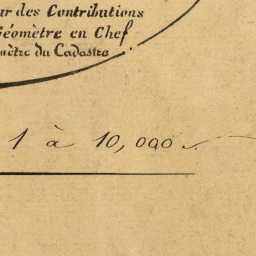 ur des Contributions
Géomètre en Chef
mètre du Cadastre.
1 à 10,000.